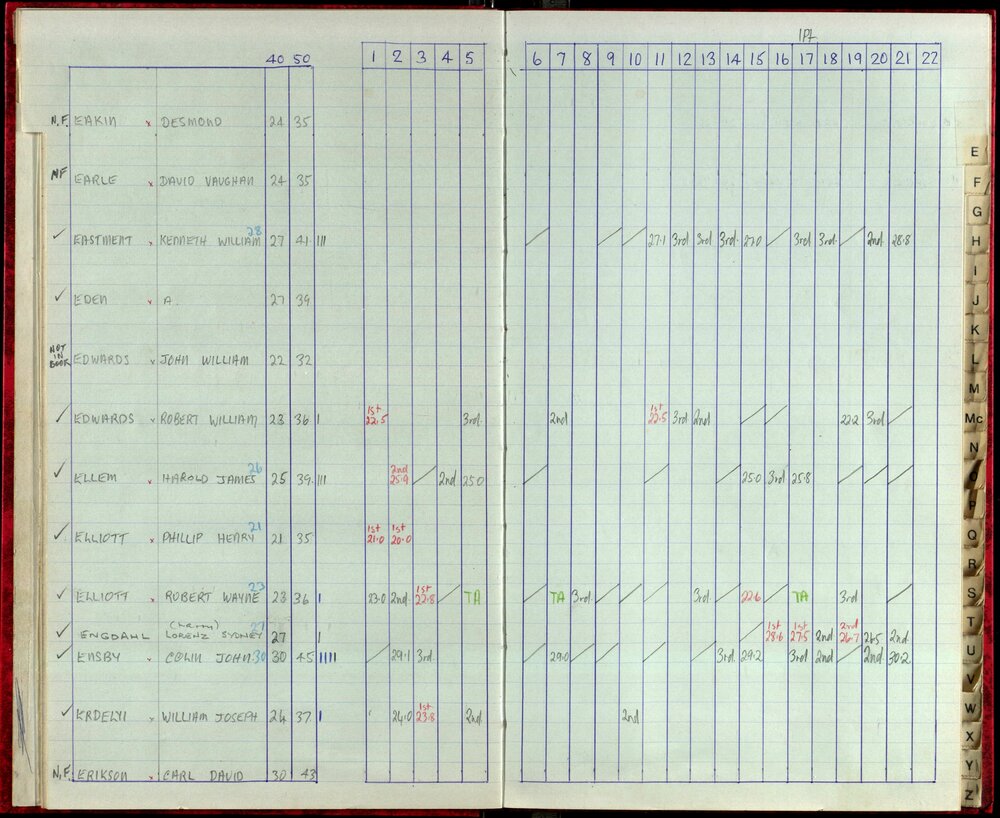 1Pt
40 50 1 2 3 4 5 6 7 8 9 10 11 12 13 14 15 16 17 18 19 20 21 22
N.F. EAKIN x DESMOND 24 35
NF EARLE x DAVID VAUGHAN 24 35
✓ EASTMENT x KENNETH WILLIAM 28 27 41 III / / / 27.1 3rd 3rd 3rd. 27.0 / 3rd 3rd. / 2nd 28.8
✓ EDEN x A. 27 39
NOT IN BOOK EDWARDS x JOHN WILLIAM 22 32
✓ EDWARDS x ROBERT WILLIAM 23 36 I 1st 22.5 3rd. 2nd 1st 22.5 3rd 2nd / / 22.2 3rd /
✓ ELLEM x HAROLD JAMES 26 25 39. III 2nd 25.9 / 2nd 25.0 / / / 25.0 3rd 25.8 / / /
✓ ELLIOTT x PHILLIP HENRY 21 21 35 1st 21.0 1st 20.0
✓ ELLIOTT x ROBERT WAYNE 23 23 36 I 23.0 2nd 1st 22.8 / TA / TA 3rd / / / 3rd 22.6 / TA 3rd /
✓ ENGDAHL (Larry) LORENZ SYDNEY 27 27 I / 1st 28.6 1st 27.5 2nd 2nd 26.7 26.5 2nd
✓ ENSBY x COLIN JOHN 30 30 45 IIIII / 29.1 3rd / 29.0 / / / 3rd 29.2 3rd 2nd / 2nd 30.2
✓ ERDELYI x WILLIAM JOSEPH 24 37 I 24.0 1st 23.8 2nd 2nd
N.F. ERIKSON x CARL DAVID 30 43
E
F
G
H
I
J
K
L
M
Mc
N
O
P
Q
R
S
T
U
V
W
X
Y
Z